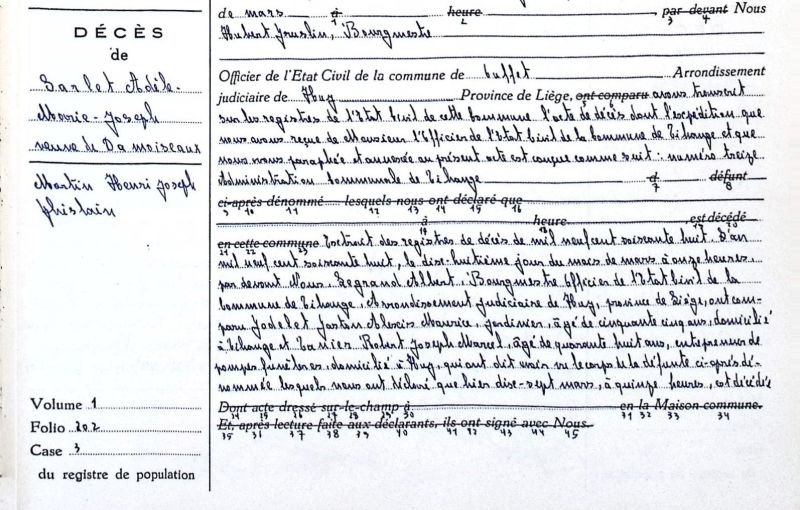 DÉCÈS
de
Sarlet Adèle
Marie-Joseph
veuve de Damoiseaux
Martin Henri Joseph
Ghislain
Volume 1
Folio 202
Case 3
du registre de population
de mars à heure , par devant Nous
1 2 3 4
Hubert , Bourgmestre
Officier de l'Etat Civil de la commune de Buffet Arrondissement
judiciaire de Huy Province de Liège, ont comparu avons transcrit
5 6
sur les registres de l'Etat Civil de cette Commune l'acte de décès dont l'expédition que
nous avons reçue de Monsieur l'Officier de l'Etat Civil de la Commune de Tihange et que
nous avons paraphée et annexée au présent acte est conçue comme suit : numéro treize
Administration Communale de Tihange et défunt
7 8
ci-après dénommé lesquels nous ont déclaré que
9 10 11 12 13 14 15 16
à heure , est décédé
17 18 19 20
en cette commune Extrait des registres de décès de mil neuf cent soixante huit. L'an
21 22 23
mil neuf cent soixante huit, le dix-huitième jour du mois de mars à onze heures,
par devant Nous, Legrand Albert, Bourgmestre Officier de l'Etat Civil de la
Commune de Tihange, Arrondissement judiciaire de Huy, province de Liège, ont com-
paru Jodelet Gaston Alexis Maurice, jardinier, âgé de cinquante cinq ans, domicilié
à Tihange et Robert Joseph Marcel, âgé de quarante huit ans, entrepreneur de
pompes funèbres, domicilié à Huy, qui ont dit avoir vu le corps de la défunte ci-après dé-
nommée lesquels nous ont déclaré que hier dix-sept mars, à quinze heures, est décédée
Dont acte dressé sur-le-champ à en la Maison commune.
30 31 32 33 34
Et, après lecture faite aux déclarants, ils ont signé avec Nous.
35 36 37 38 39 40 41 42 43 44 45